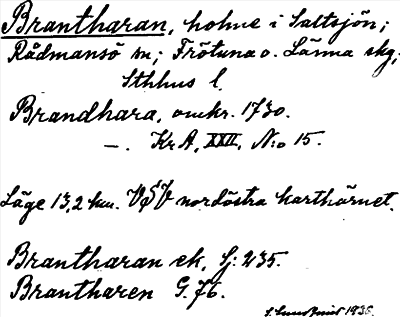 Brantharan, holme i Saltsjön;
Rådmansö sn; Frötuna o. Länna skg;
Sthlms l.
Brandhara, omkr. 1730.
—. Kr A, XXII, N:o 15.
Läge 13,2 km. VSV nordöstra karthörnet.
Brantharan ek, Sj: 235.
Brantharen G. 76.
1936.